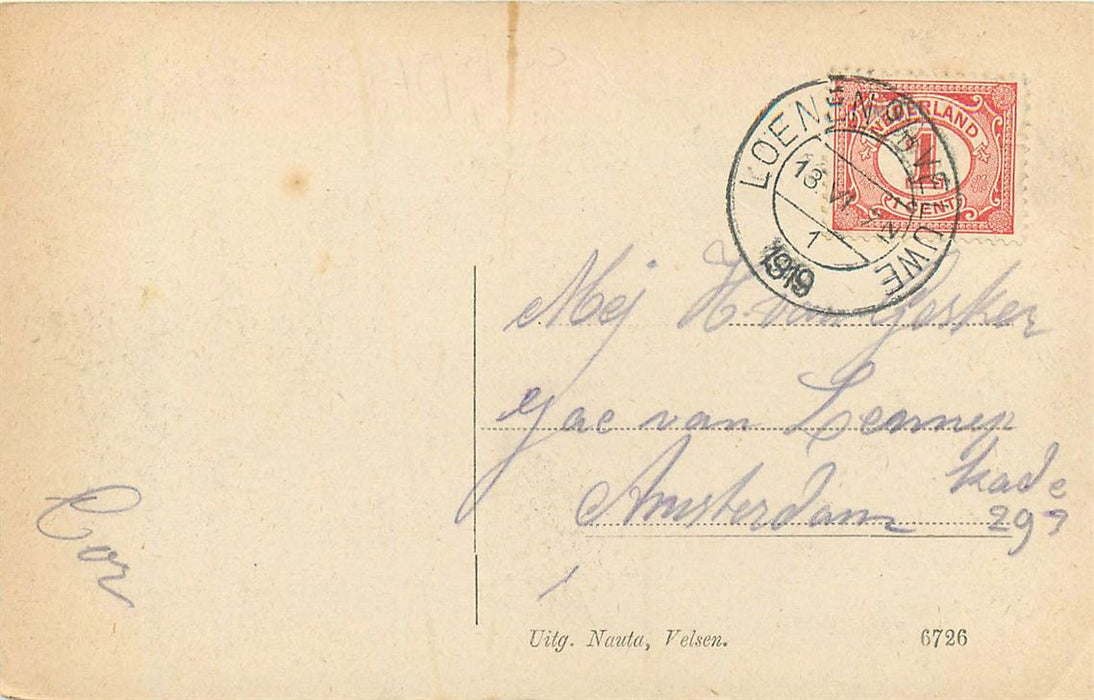 NEDERLAND
1
1 CENT
LOENEN OP VELUWE
18 VI
1
1919
Mej H. van Gosker
Jac van Lennep
kade
Amsterdam 293
Cor
Uitg. Nauta, Velsen.
6726